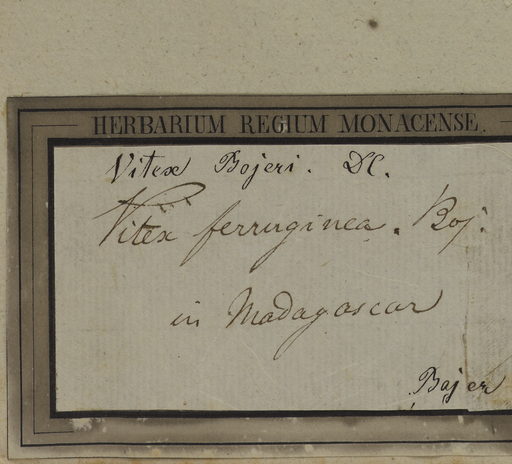 HERBARIUM REGIUM MONACENSE.
Vitex Bojeri. DC.
Vitex ferruginea. Boj.
in Madagascar
Bojer